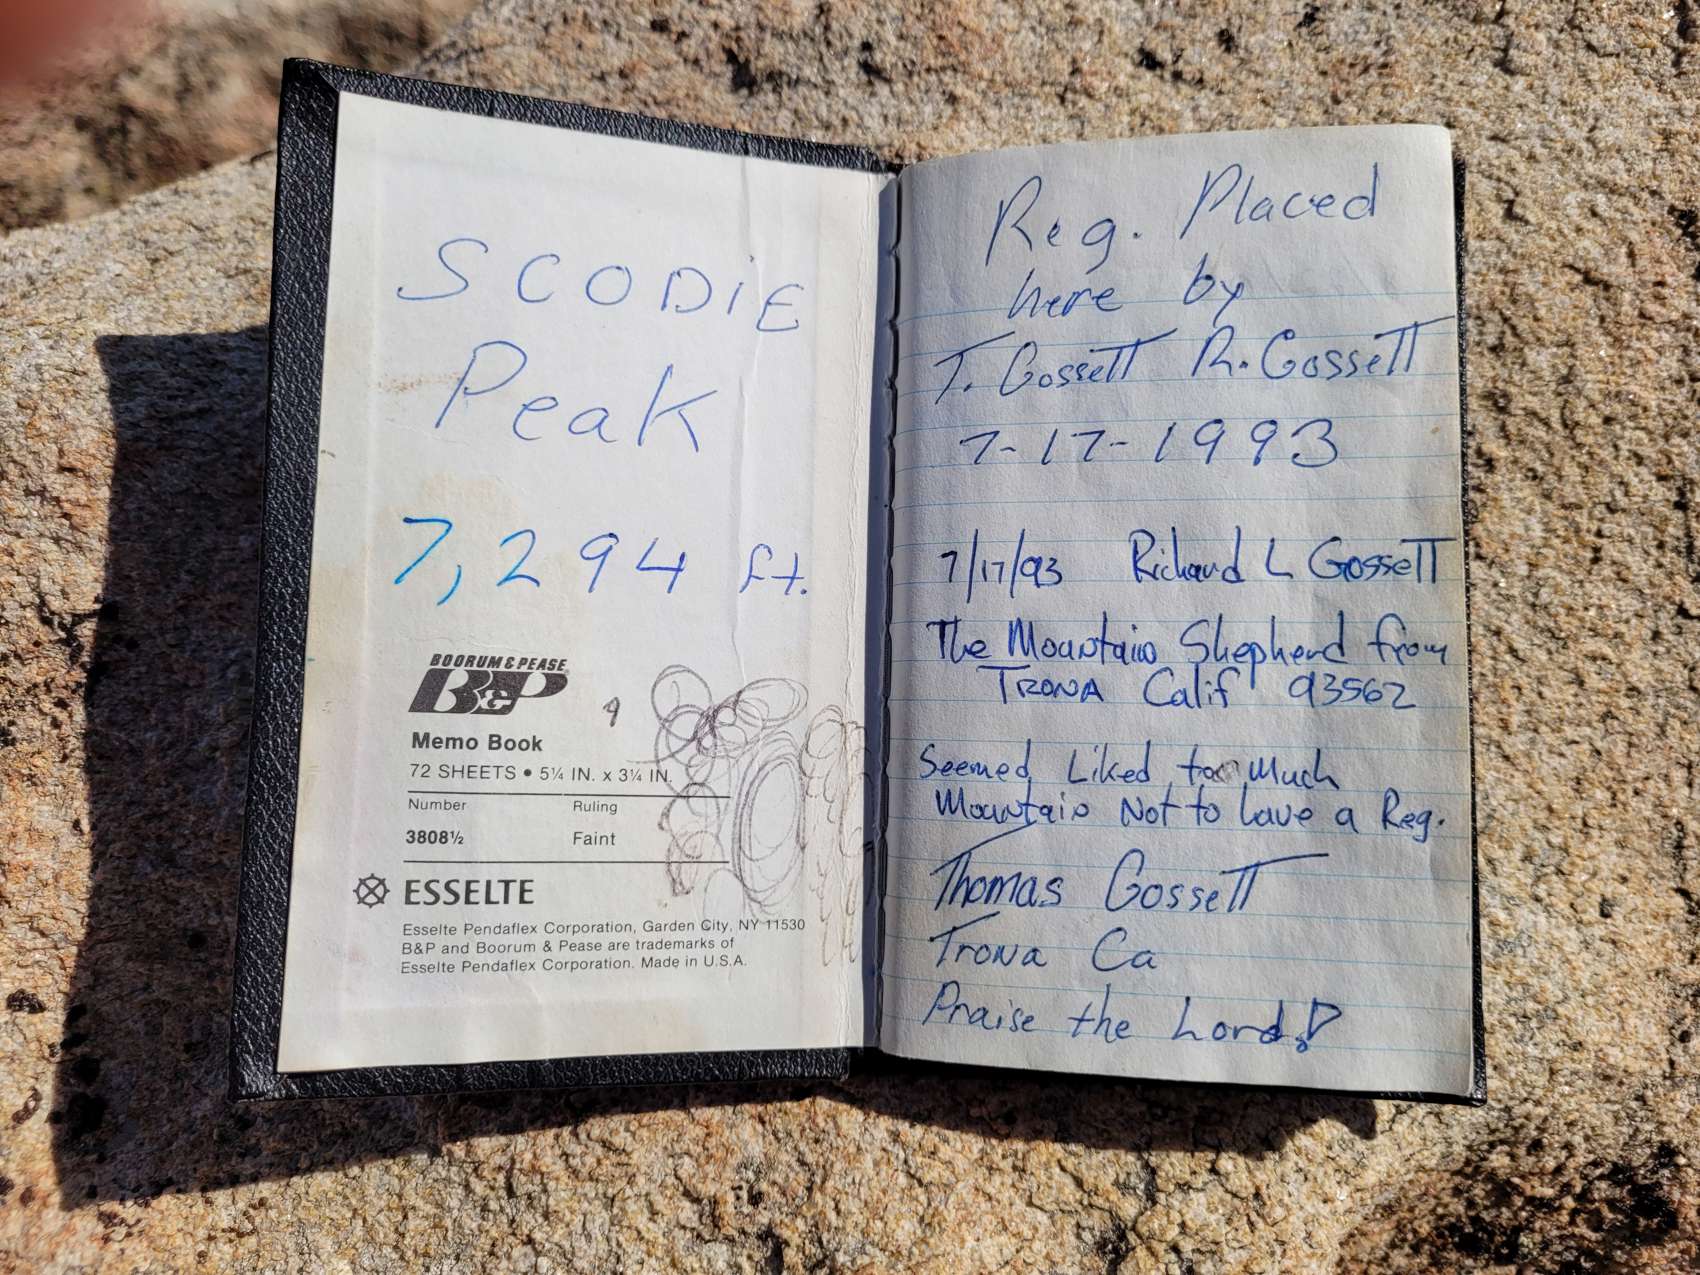 SCODiE
Peak
7,294 ft.
BOORUM & PEASE
B&P
Memo Book
72 SHEETS • 5¼ IN. x 3¼ IN.
Number Ruling
3808½ Faint
ESSELTE
Esselte Pendaflex Corporation, Garden City, NY 11530
B&P and Boorum & Pease are trademarks of
Esselte Pendaflex Corporation. Made in U.S.A.
Reg. Placed
here by
T. Gossett R. Gossett
7-17-1993
7/17/93 Richard L Gossett
The Mountain Shepherd from
TRONA Calif 93562
Seemed Liked too Much
Mountain Not to Leave a Reg.
Thomas Gossett
Trona Ca
Praise the Lord!